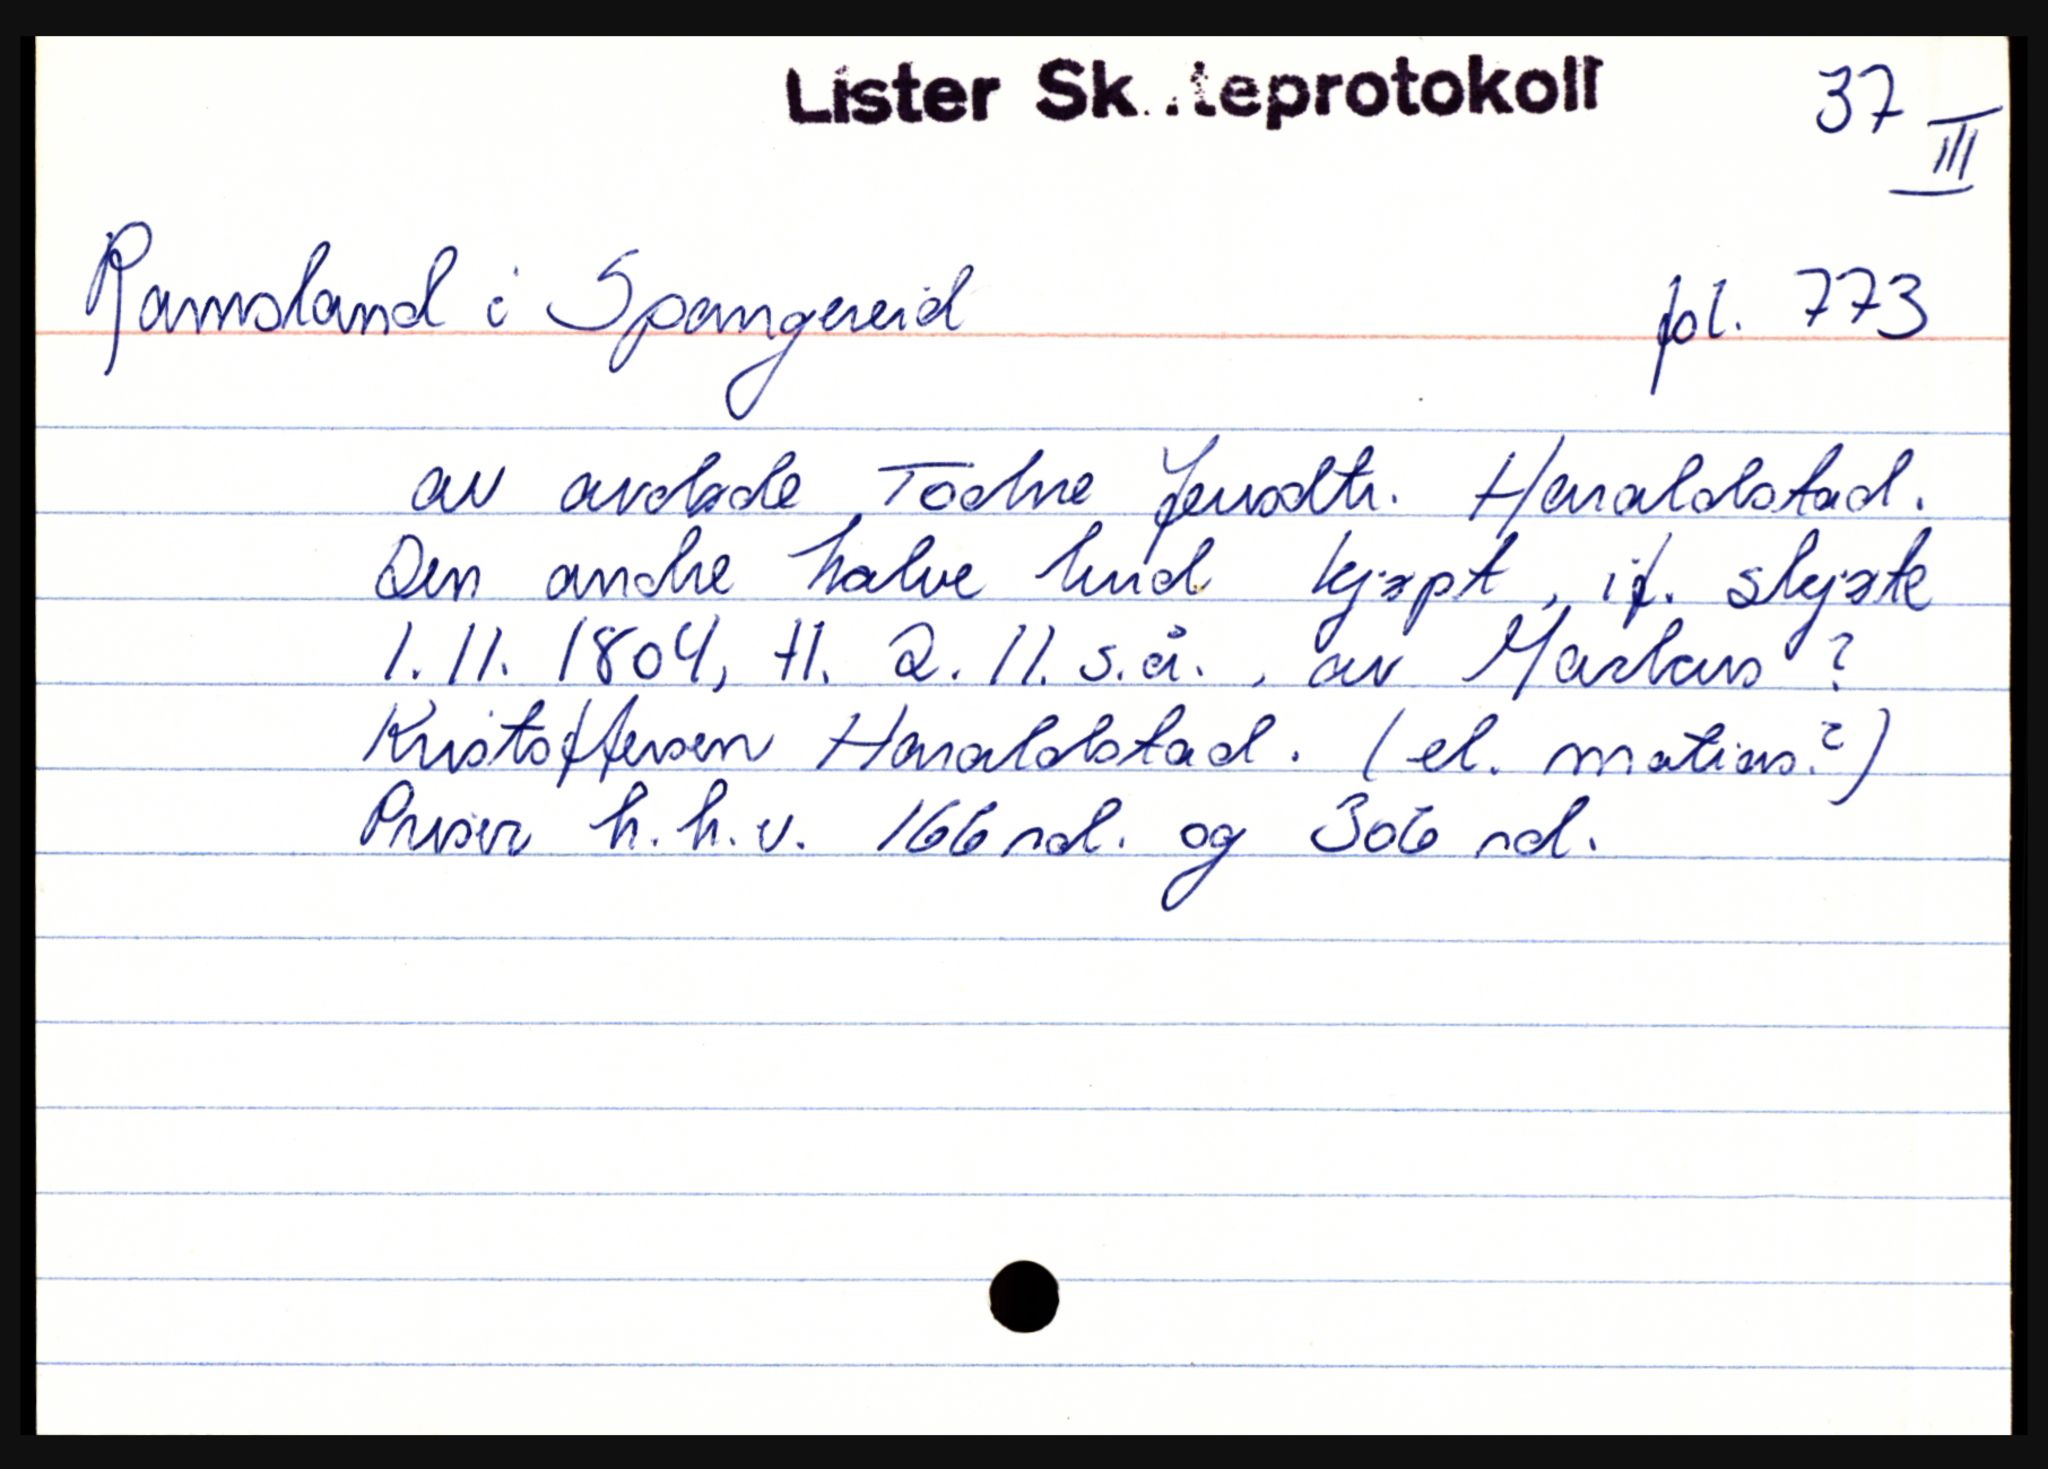 Lister Sk..teprotokoll
37 III
Ramsland i Spangereid fol. 773
av avdøde Todne Jensdtr. Haraldstad.
Den andre halve hud kjøpt, if. skjøte
1.11.1804, tl. 2.11.s.å., av Markus ?
Kristoffersen Haraldstad. (el. matias?)
Priser h.h.v. 166 rd. og 306 rd.